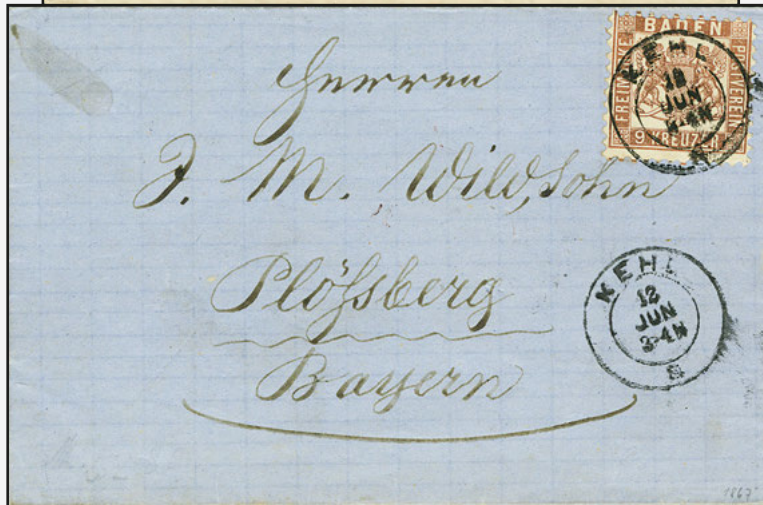 BADEN
FREIMARKE
POSTVEREIN
9 KREUZER
KEHL
12
JUN
3-4N
Herren
J. M. Wild, Sohn
Plößberg
Bayern
KEHL
12
JUN
3-4N
1867